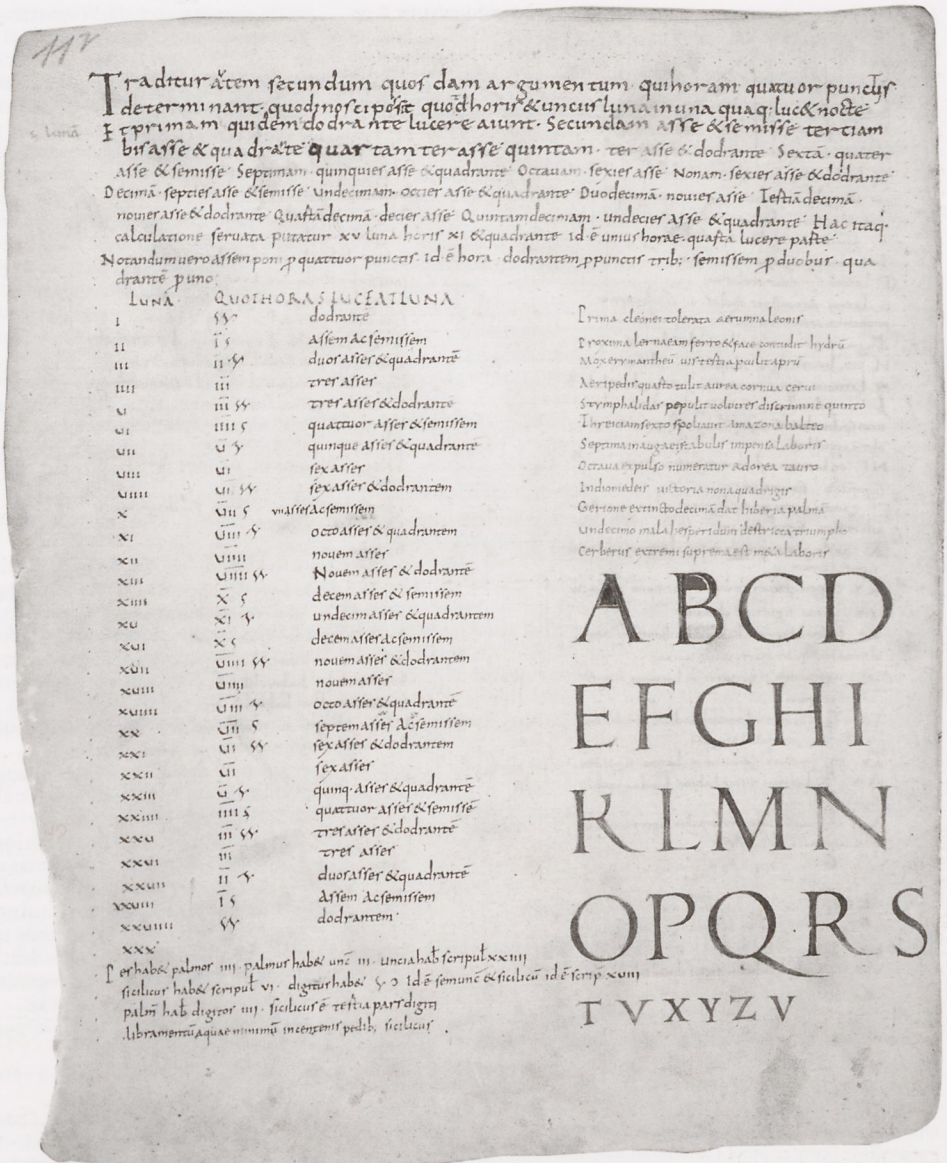 112
Traditur autem secundum quosdam argumentum. quihoram quatuor punctis
determinant. quodinosci possit quod horis &uncus luna inuna quaq. luc& nocte
s lunā
Et primam quidem dodrante lucere aiunt. Secundam asse & semisse tertiam
bis asse & quadrāte quartam ter asse quintam. ter asse & dodrante Sextā. quater
asse & semisse Septimam. quinquies asse & quadrante Octauam. sexies asse Nonam. sexies asse & dodrante
Decimā. septies asse & semisse undecimam. octies asse & quadrante Duodecimā. nouies asse Tertiā decimā.
nouies asse & dodrante Quartā decimā. decies asse Quintam decimam. undecies asse & quadrante Hac itaq.
calculatione seruata putatur xv luna horis xi & quadrante id ē unius horae. quarta lucere parte
Notandum uero assem poni p quattuor punctis. id ē hora. dodrantem p punctis trib; semissem p duobus. qua
drantē p uno;
LUNA QUOTHORAS LUCEAT LUNA
I dodrantē
II I S assem ac semissem
III II duos asses & quadrantē
IIII III tres asses
U III tres asses & dodrantē
UI IIII S quattuor asses & semissem
UII U quinque asses & quadrantē
UIII UI sex asses
UIIII UI sex asses & dodrantem
X UII S VII asses ac semissem
XI UIII octo asses & quadrantem
XII UIIII nouem asses
XIII UIIII Nouem asses & dodrantē
XIIII X S decem asses & semissem
XU XI undecim asses & quadrantem
XUI X S decem asses ac semissem
XUII UIIII nouem asses & dodrantem
XUIII UIIII nouem asses
XUIIII UIII octo asses & quadrantē
XX UII S septem asses Ac semissem
XXI UI sex asses & dodrantem
XXII UI sex asses
XXIII U quinq. asses & quadrantē
XXIIII IIII S quattuor asses & semissē
XXU III tres asses & dodrantē
XXUI III tres asses
XXUII II duos asses & quadrantē
XXUIII I S Assem Ac semissem
XXUIIII dodrantem
XXX
Pes hab& palmos IIII. palmus hab& unc III. Uncia hab scripul XXIIII
sicilicus hab& scripul VI. digitus hab& Id ē semunc & sicilicū id ē scrip XVIII
palm hab digitos IIII. sicilicus ē tertia pars digiti
libramentū aquae minimū in centenis pedib; sicilicus.
Prima cleonei tolerata aerumna leonis
Proxima lernaeam ferro & face contudit hydrū
Mox erymantheū uis tertia pculit aprū
Aeripedis quarto tulit aurea cornua cerui
Stymphalidas pepulit uolucres discrimine quinto
Threiciam sexto spoliauit amazona balteo
Septima in augaei stabulis impensa laboris
Octaua expulso numeratur adorea tauro
In diomedeis uictoria nona quadrigis
Gerione extincto decimā dat hiberia palmā
Undecimo mala hesperidum destricta triumpho
Cerberus extremi suprema est m&a laboris
ABCD
EFGHI
KLMN
OPQRS
TVXYZV